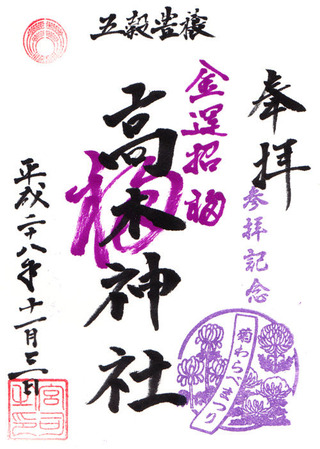 五穀豊穣
奉拝
参拝記念
金運招福
福
高木神社
菊わらべまつり
平成二十八年十一月三日
宮司之印